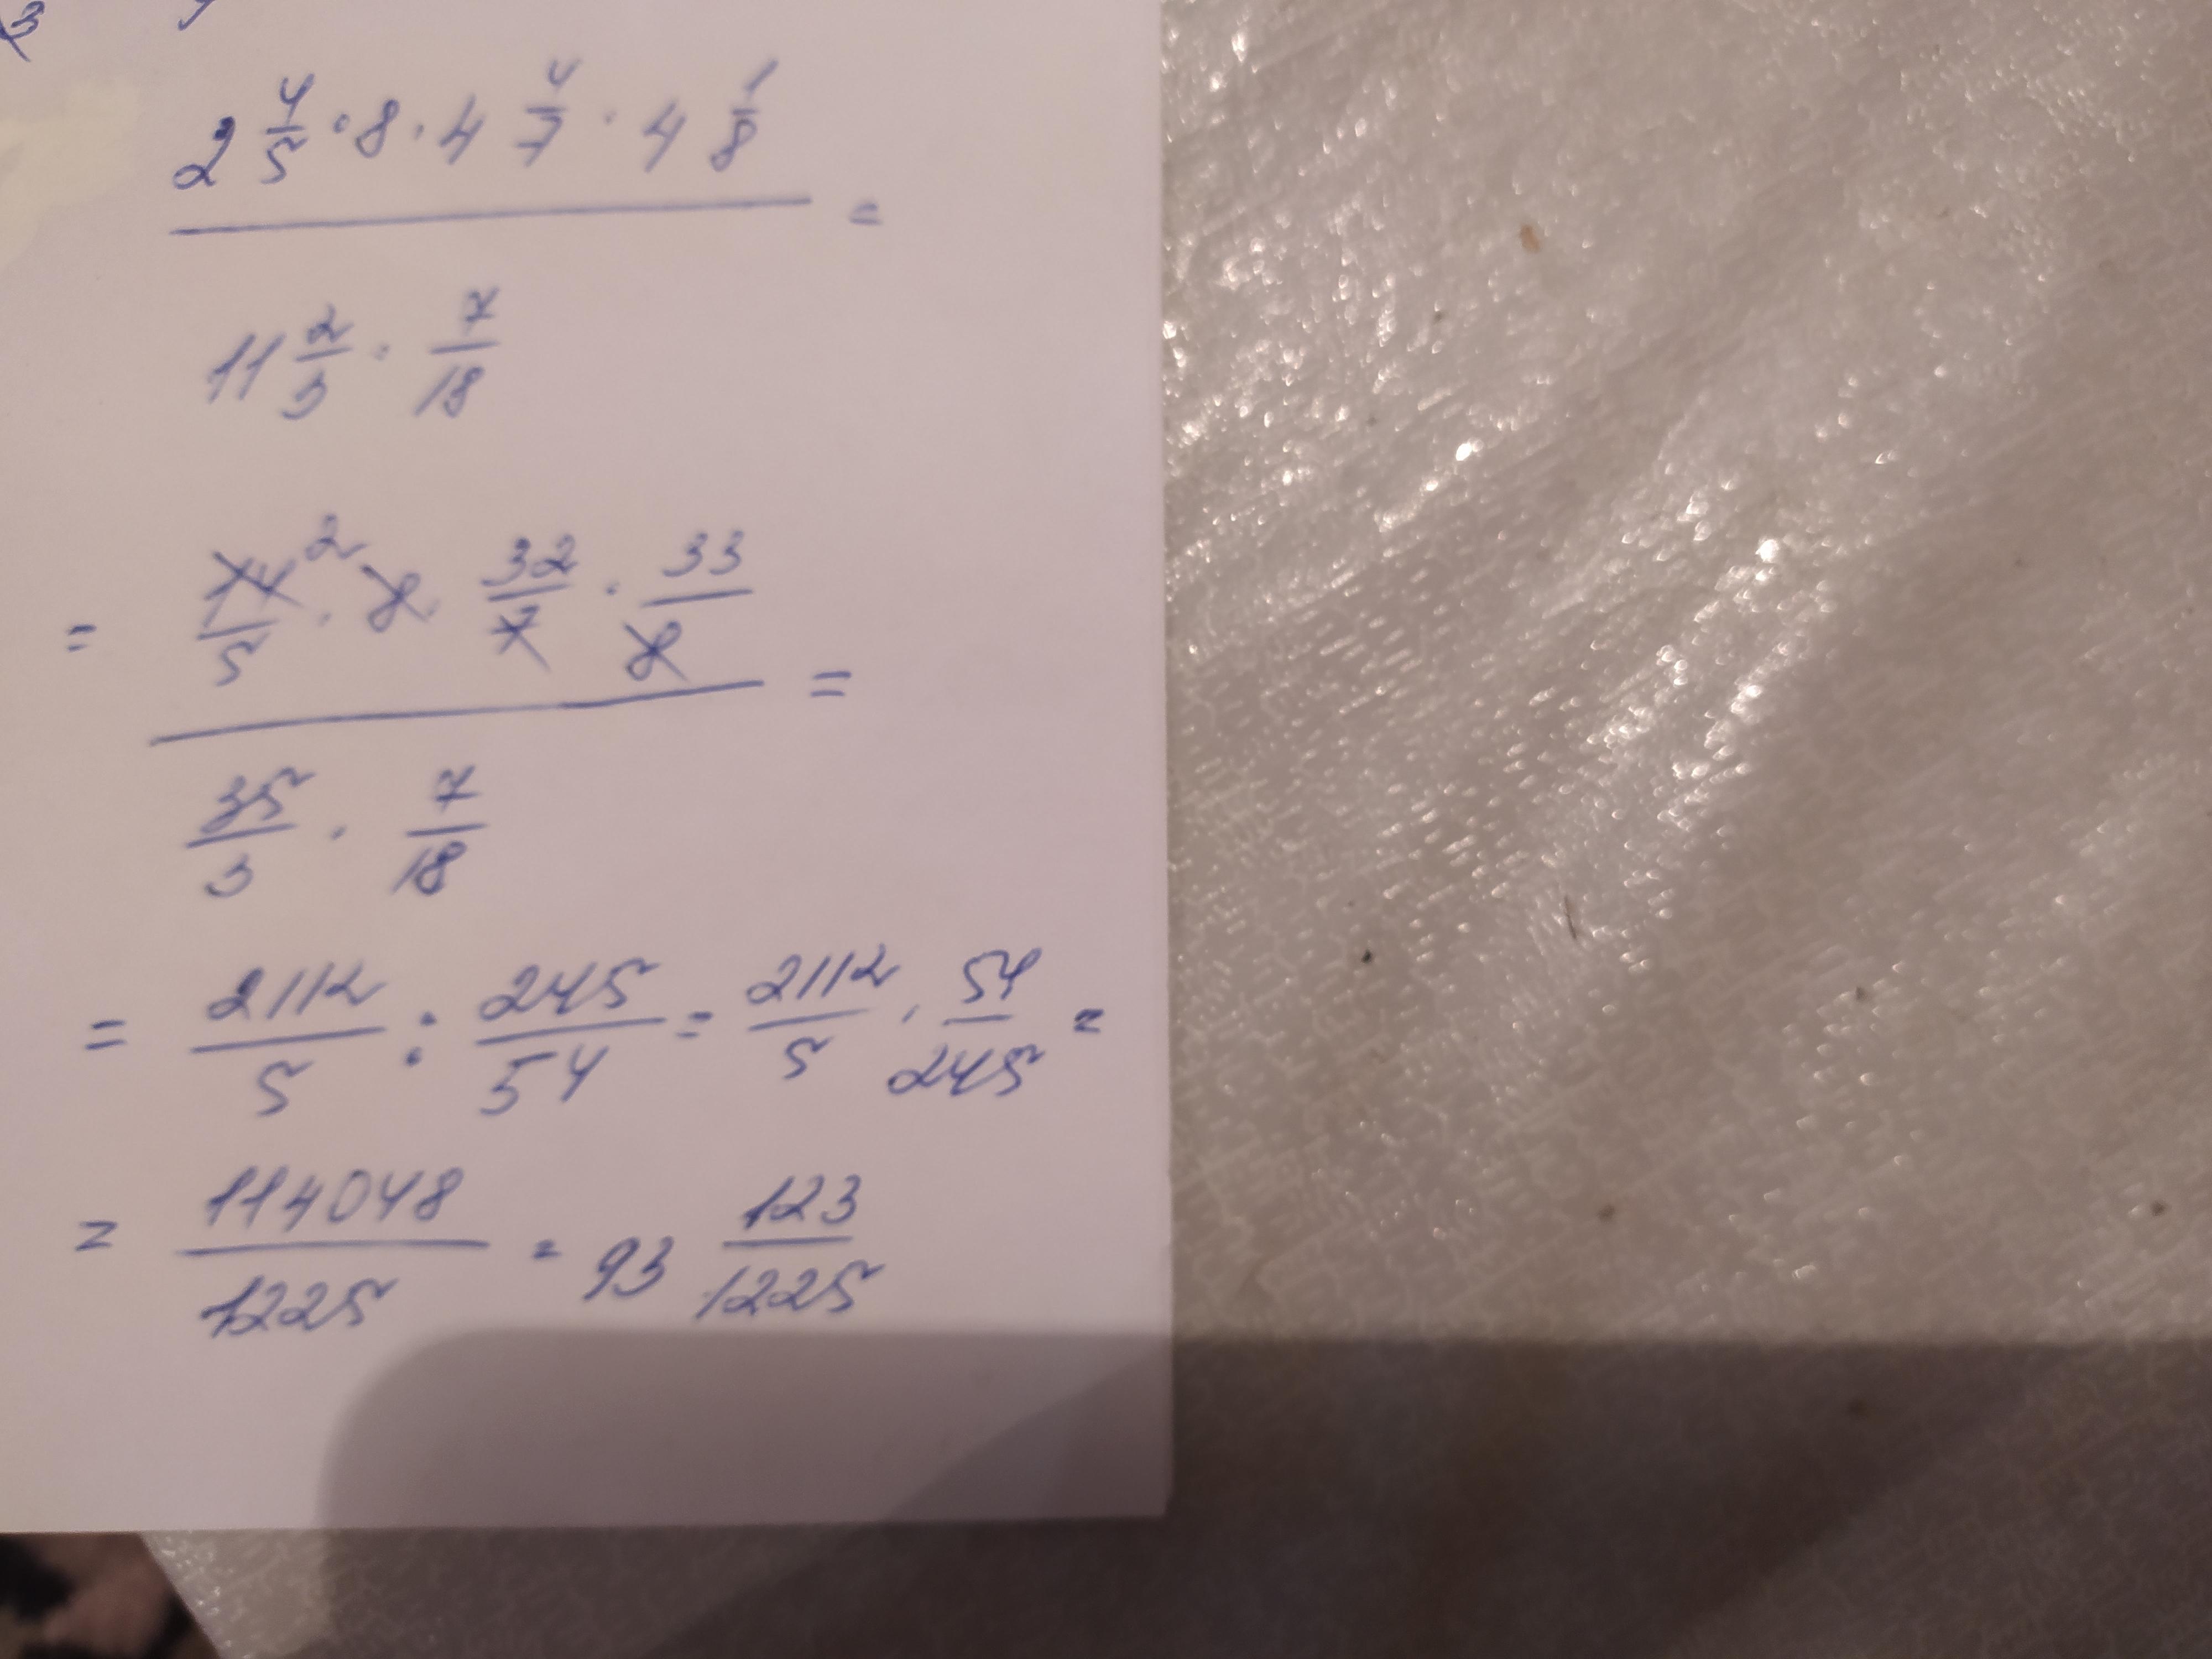 3
2 4/5 · 8 · 4 4/7 · 4 1/8
=
11 2/3 · 7/18
= 14/5 2 · 8 · 32/7 · 33/8
=
35/3 · 7/18
= 2112/5 : 245/54 = 2112/5 · 54/245 =
= 114048/1225 = 93 123/1225